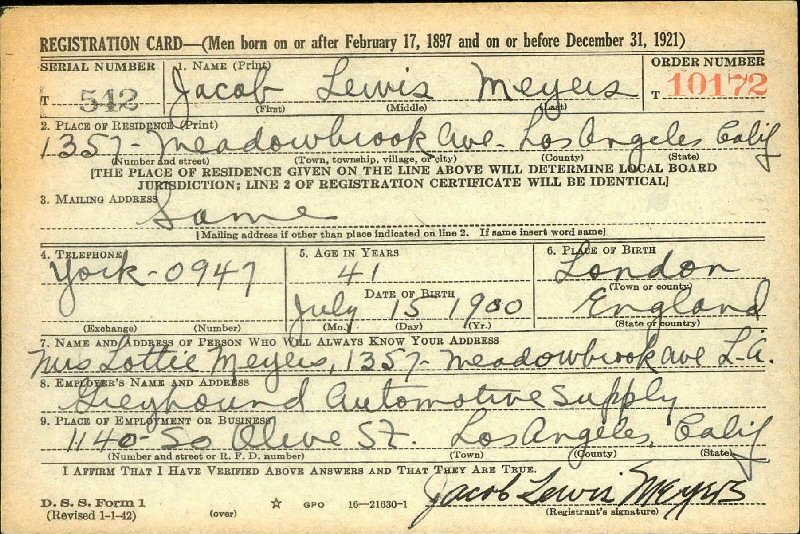 REGISTRATION CARD—(Men born on or after February 17, 1897 and on or before December 31, 1921)
SERIAL NUMBER
T 542
1. NAME (Print)
Jacob Lewis Meyers
(First) (Middle) (Last)
ORDER NUMBER
T 10172
2. PLACE OF RESIDENCE (Print)
1357- Meadowbrook Ave- Los Angeles Calif
(Number and street) (Town, township, village, or city) (County) (State)
[THE PLACE OF RESIDENCE GIVEN ON THE LINE ABOVE WILL DETERMINE LOCAL BOARD
JURISDICTION; LINE 2 OF REGISTRATION CERTIFICATE WILL BE IDENTICAL]
3. MAILING ADDRESS
Same
[Mailing address if other than place indicated on line 2. If same insert word same]
4. TELEPHONE
York-0947
(Exchange) (Number)
5. AGE IN YEARS
41
DATE OF BIRTH
July 15 1900
(Mo.) (Day) (Yr.)
6. PLACE OF BIRTH
London
(Town or county)
England
(State or country)
7. NAME AND ADDRESS OF PERSON WHO WILL ALWAYS KNOW YOUR ADDRESS
Mrs Lottie Meyers, 1357- Meadowbrook Ave L-A.
8. EMPLOYER'S NAME AND ADDRESS
Greyhound Automotive Supply
9. PLACE OF EMPLOYMENT OR BUSINESS
1140- So Olive St. Los Angeles, Calif
(Number and street or R. F. D. number) (Town) (County) (State)
I AFFIRM THAT I HAVE VERIFIED ABOVE ANSWERS AND THAT THEY ARE TRUE.
Jacob Lewis Meyers
D. S. S. Form 1
(Revised 1-1-42) (over) ☆ GPO 16—21630-1 (Registrant's signature)